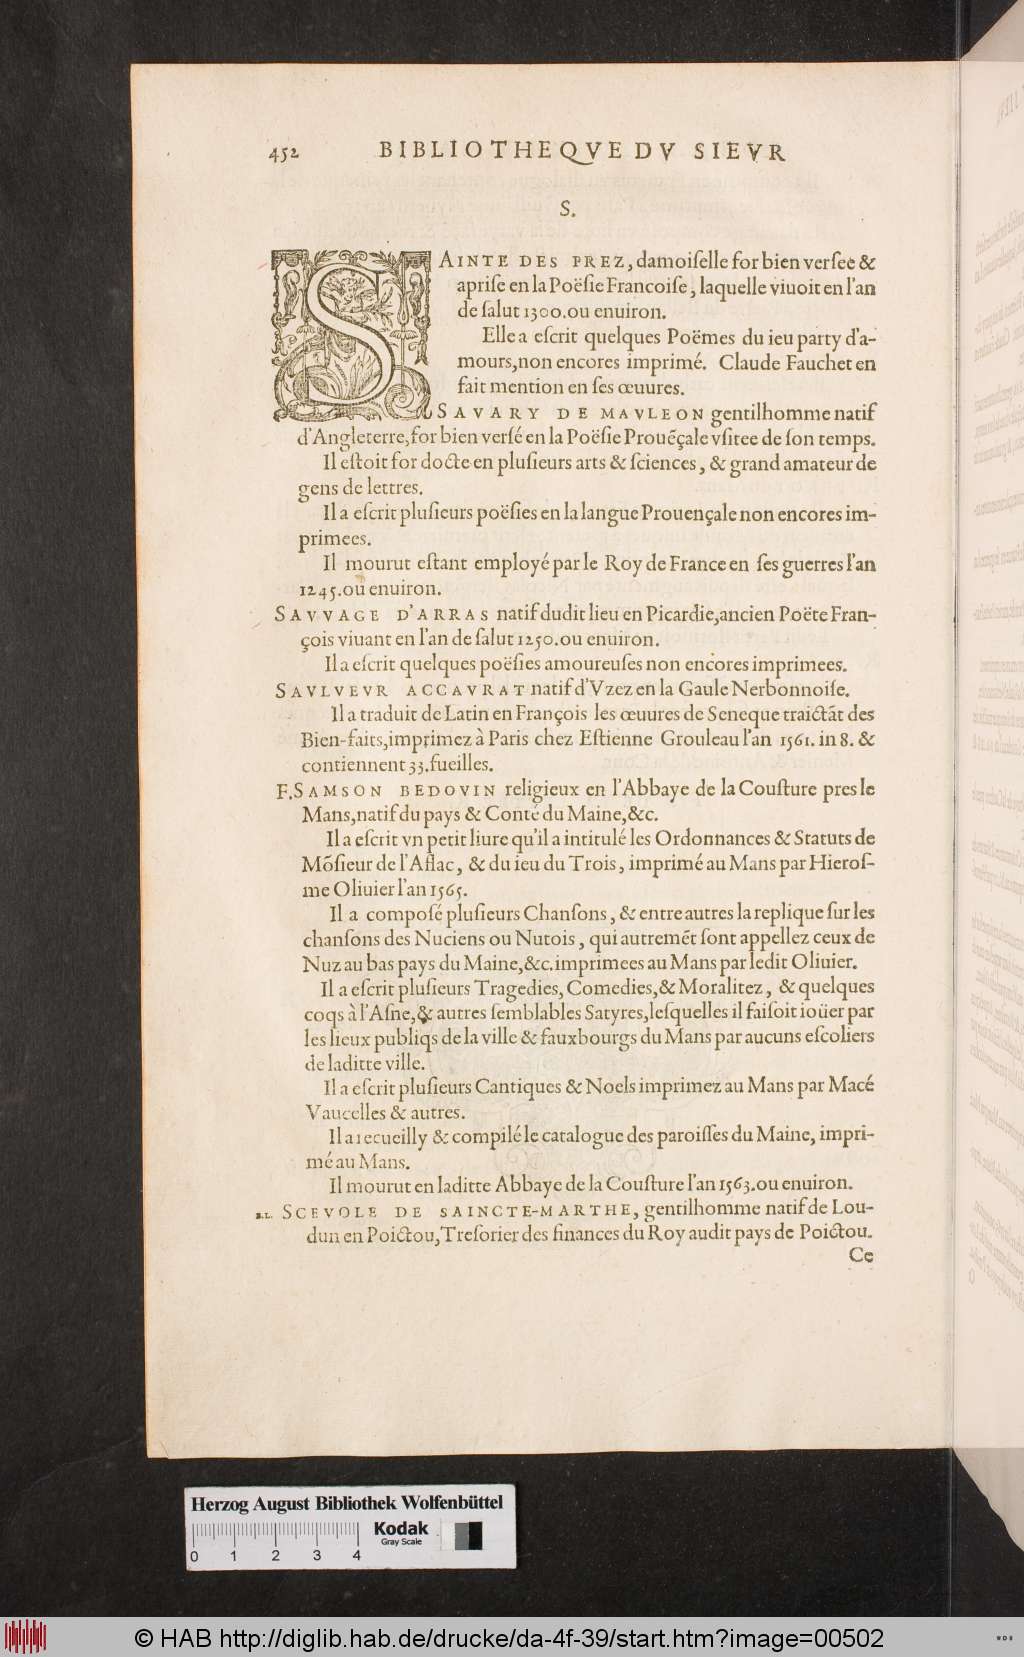 452 BIBLIOTHEQVE DV SIEVR
S.
SAINTE DES PREZ, damoiſelle for bien verſee &
apriſe en la Poëſie Francoiſe, laquelle viuoit en l'an
de ſalut 1300. ou enuiron.
Elle a eſcrit quelques Poëmes du ieu party d'a-
mours, non encores imprimé. Claude Fauchet en
fait mention en ſes œuures.
SAVARY DE MAVLEON gentilhomme natif
d'Angleterre, for bien verſé en la Poëſie Prouẽçale vſitee de ſon temps.
Il eſtoit for docte en pluſieurs arts & ſciences, & grand amateur de
gens de lettres.
Il a eſcrit pluſieurs poëſies en la langue Prouençale non encores im-
primees.
Il mourut eſtant employé par le Roy de France en ſes guerres l'an
1245. ou enuiron.
SAVVAGE D'ARRAS natif dudit lieu en Picardie, ancien Poëte Fran-
çois viuant en l'an de ſalut 1250. ou enuiron.
Il a eſcrit quelques poëſies amoureuſes non encores imprimees.
SAVLVEVR ACCAVRAT natif d'Vzez en la Gaule Nerbonnoiſe.
Il a traduit de Latin en François les œuures de Seneque traictãt des
Bien-faits, imprimez à Paris chez Eſtienne Grouleau l'an 1561. in 8. &
contiennent 33. fueilles.
F. SAMSON BEDOVIN religieux en l'Abbaye de la Couſture pres le
Mans, natif du pays & Conté du Maine, &c.
Il a eſcrit vn petit liure qu'il a intitulé les Ordonnances & Statuts de
Mõſieur de l'Aflac, & du ieu du Trois, imprimé au Mans par Hieroſ-
me Oliuier l'an 1565.
Il a compoſé pluſieurs Chanſons, & entre autres la replique ſur les
chanſons des Nuciens ou Nutois, qui autremẽt ſont appellez ceux de
Nuz au bas pays du Maine, &c. imprimees au Mans par ledit Oliuier.
Il a eſcrit pluſieurs Tragedies, Comedies, & Moralitez, & quelques
coqs à l'Aſne, & autres ſemblables Satyres, leſquelles il faiſoit ioüer par
les lieux publiqs de la ville & fauxbourgs du Mans par aucuns eſcoliers
de laditte ville.
Il a eſcrit pluſieurs Cantiques & Noels imprimez au Mans par Macé
Vaucelles & autres.
Il a recueilly & compilé le catalogue des paroiſſes du Maine, impri-
mé au Mans.
Il mourut en laditte Abbaye de la Couſture l'an 1563. ou enuiron.
B.L. SCEVOLE DE SAINCTE-MARTHE, gentilhomme natif de Lou-
dun en Poictou, Treſorier des finances du Roy audit pays de Poictou.
Ce
Herzog August Bibliothek Wolfenbüttel
Kodak
Gray Scale
0 1 2 3 4
© HAB http://diglib.hab.de/drucke/da-4f-39/start.htm?image=00502